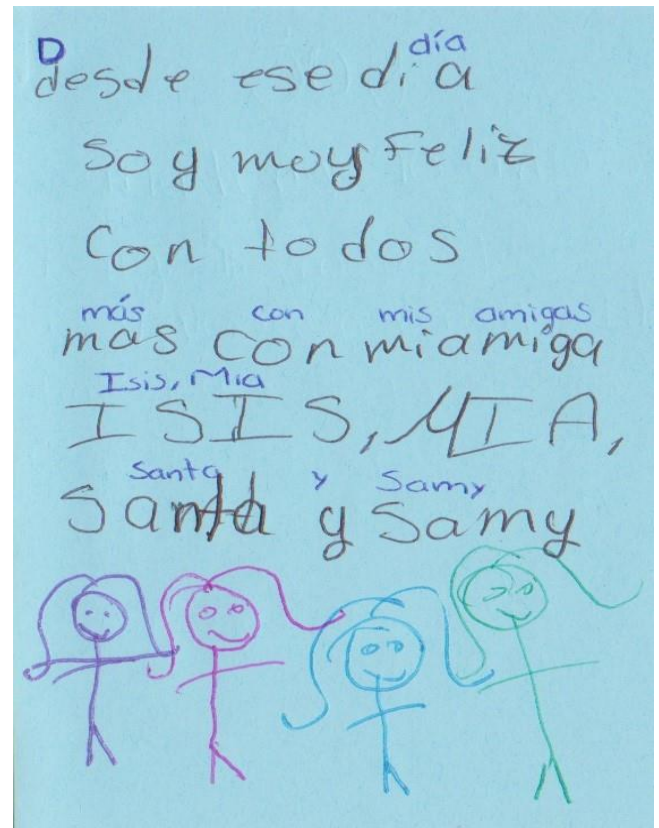 D día
desde ese dia
soy moy Feliz
con todos
más con mis amigas
mas con miamiga
Isis, Mia
ISIS, MIA,
Santa y Samy
Santa y Samy